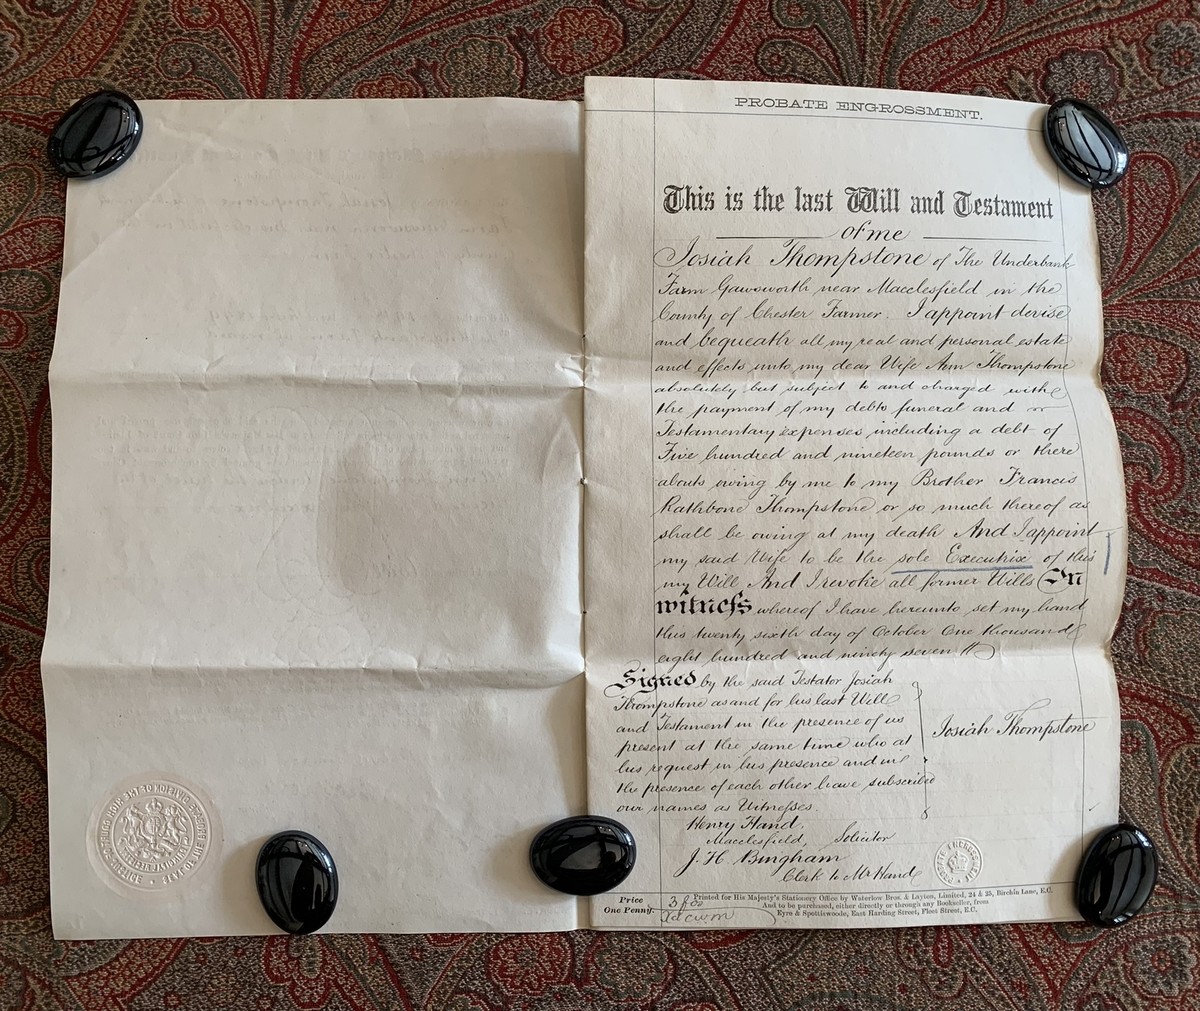 PROBATE ENGROSSMENT.
This is the last Will and Testament
of me
Josiah Thompstone of The Underbank
Farm Gawsworth near Macclesfield in the
County of Chester Farmer. I appoint devise
and bequeath all my real and personal estate
and effects unto my dear Wife Ann Thompstone
absolutely but subject to and charged with
the payment of my debts funeral and
Testamentary expenses including a debt of
Five hundred and nineteen pounds or there
abouts owing by me to my Brother Francis
Rathbone Thompstone or so much thereof as
shall be owing at my death And I appoint
my said Wife to be the sole Executrix of this
my Will And I revoke all former Wills In
witness whereof I have hereunto set my hand
this twenty sixth day of October One thousand
eight hundred and ninety seven
Signed by the said Testator Josiah
Thompstone as and for his last Will
and Testament in the presence of us
present at the same time who at
his request in his presence and in
the presence of each other have subscribed
our names as Witnesses.
Josiah Thompstone
Henry Hand.
Macclesfield, Solicitor
J. H. Bingham
Clerk to Mr Hand
Price
One Penny.
Printed for His Majesty's Stationery Office by Waterlow Bros. & Layton, Limited, 24 & 25, Birchin Lane, E.C.
And to be purchased, either directly or through any Bookseller, from
Eyre & Spottiswoode, East Harding Street, Fleet Street, E.C.